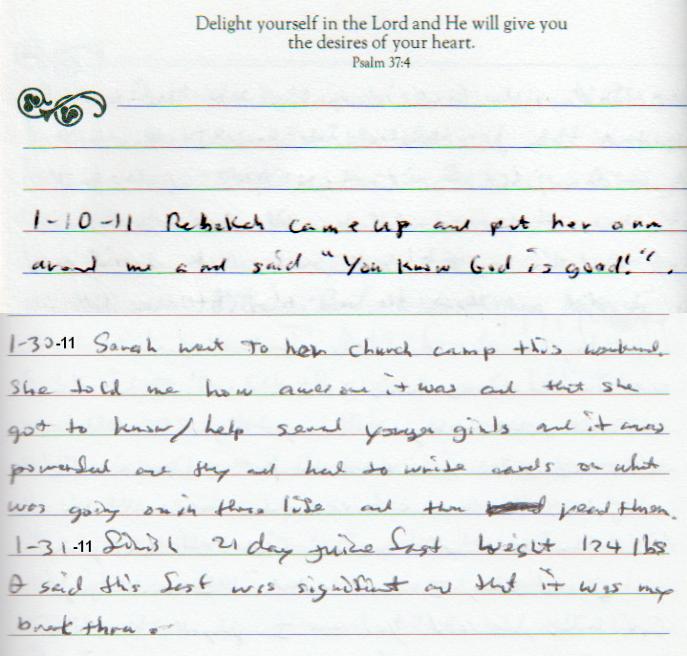 Delight yourself in the Lord and He will give you
the desires of your heart.
Psalm 37:4
1-10-11 Rebekah came up and put her arm
around me and said "You know God is good!".
1-30-11 Sarah went to her church camp this weekend.
She told me how awesome it was and that she
got to know/help several younger girls and it was
powerful and they all had to write cards on what
was going on in there life and then read them.
1-31-11 Finish 21 day juice fast Weight 124 lbs
I said this fast was significant and that it was my
break thru